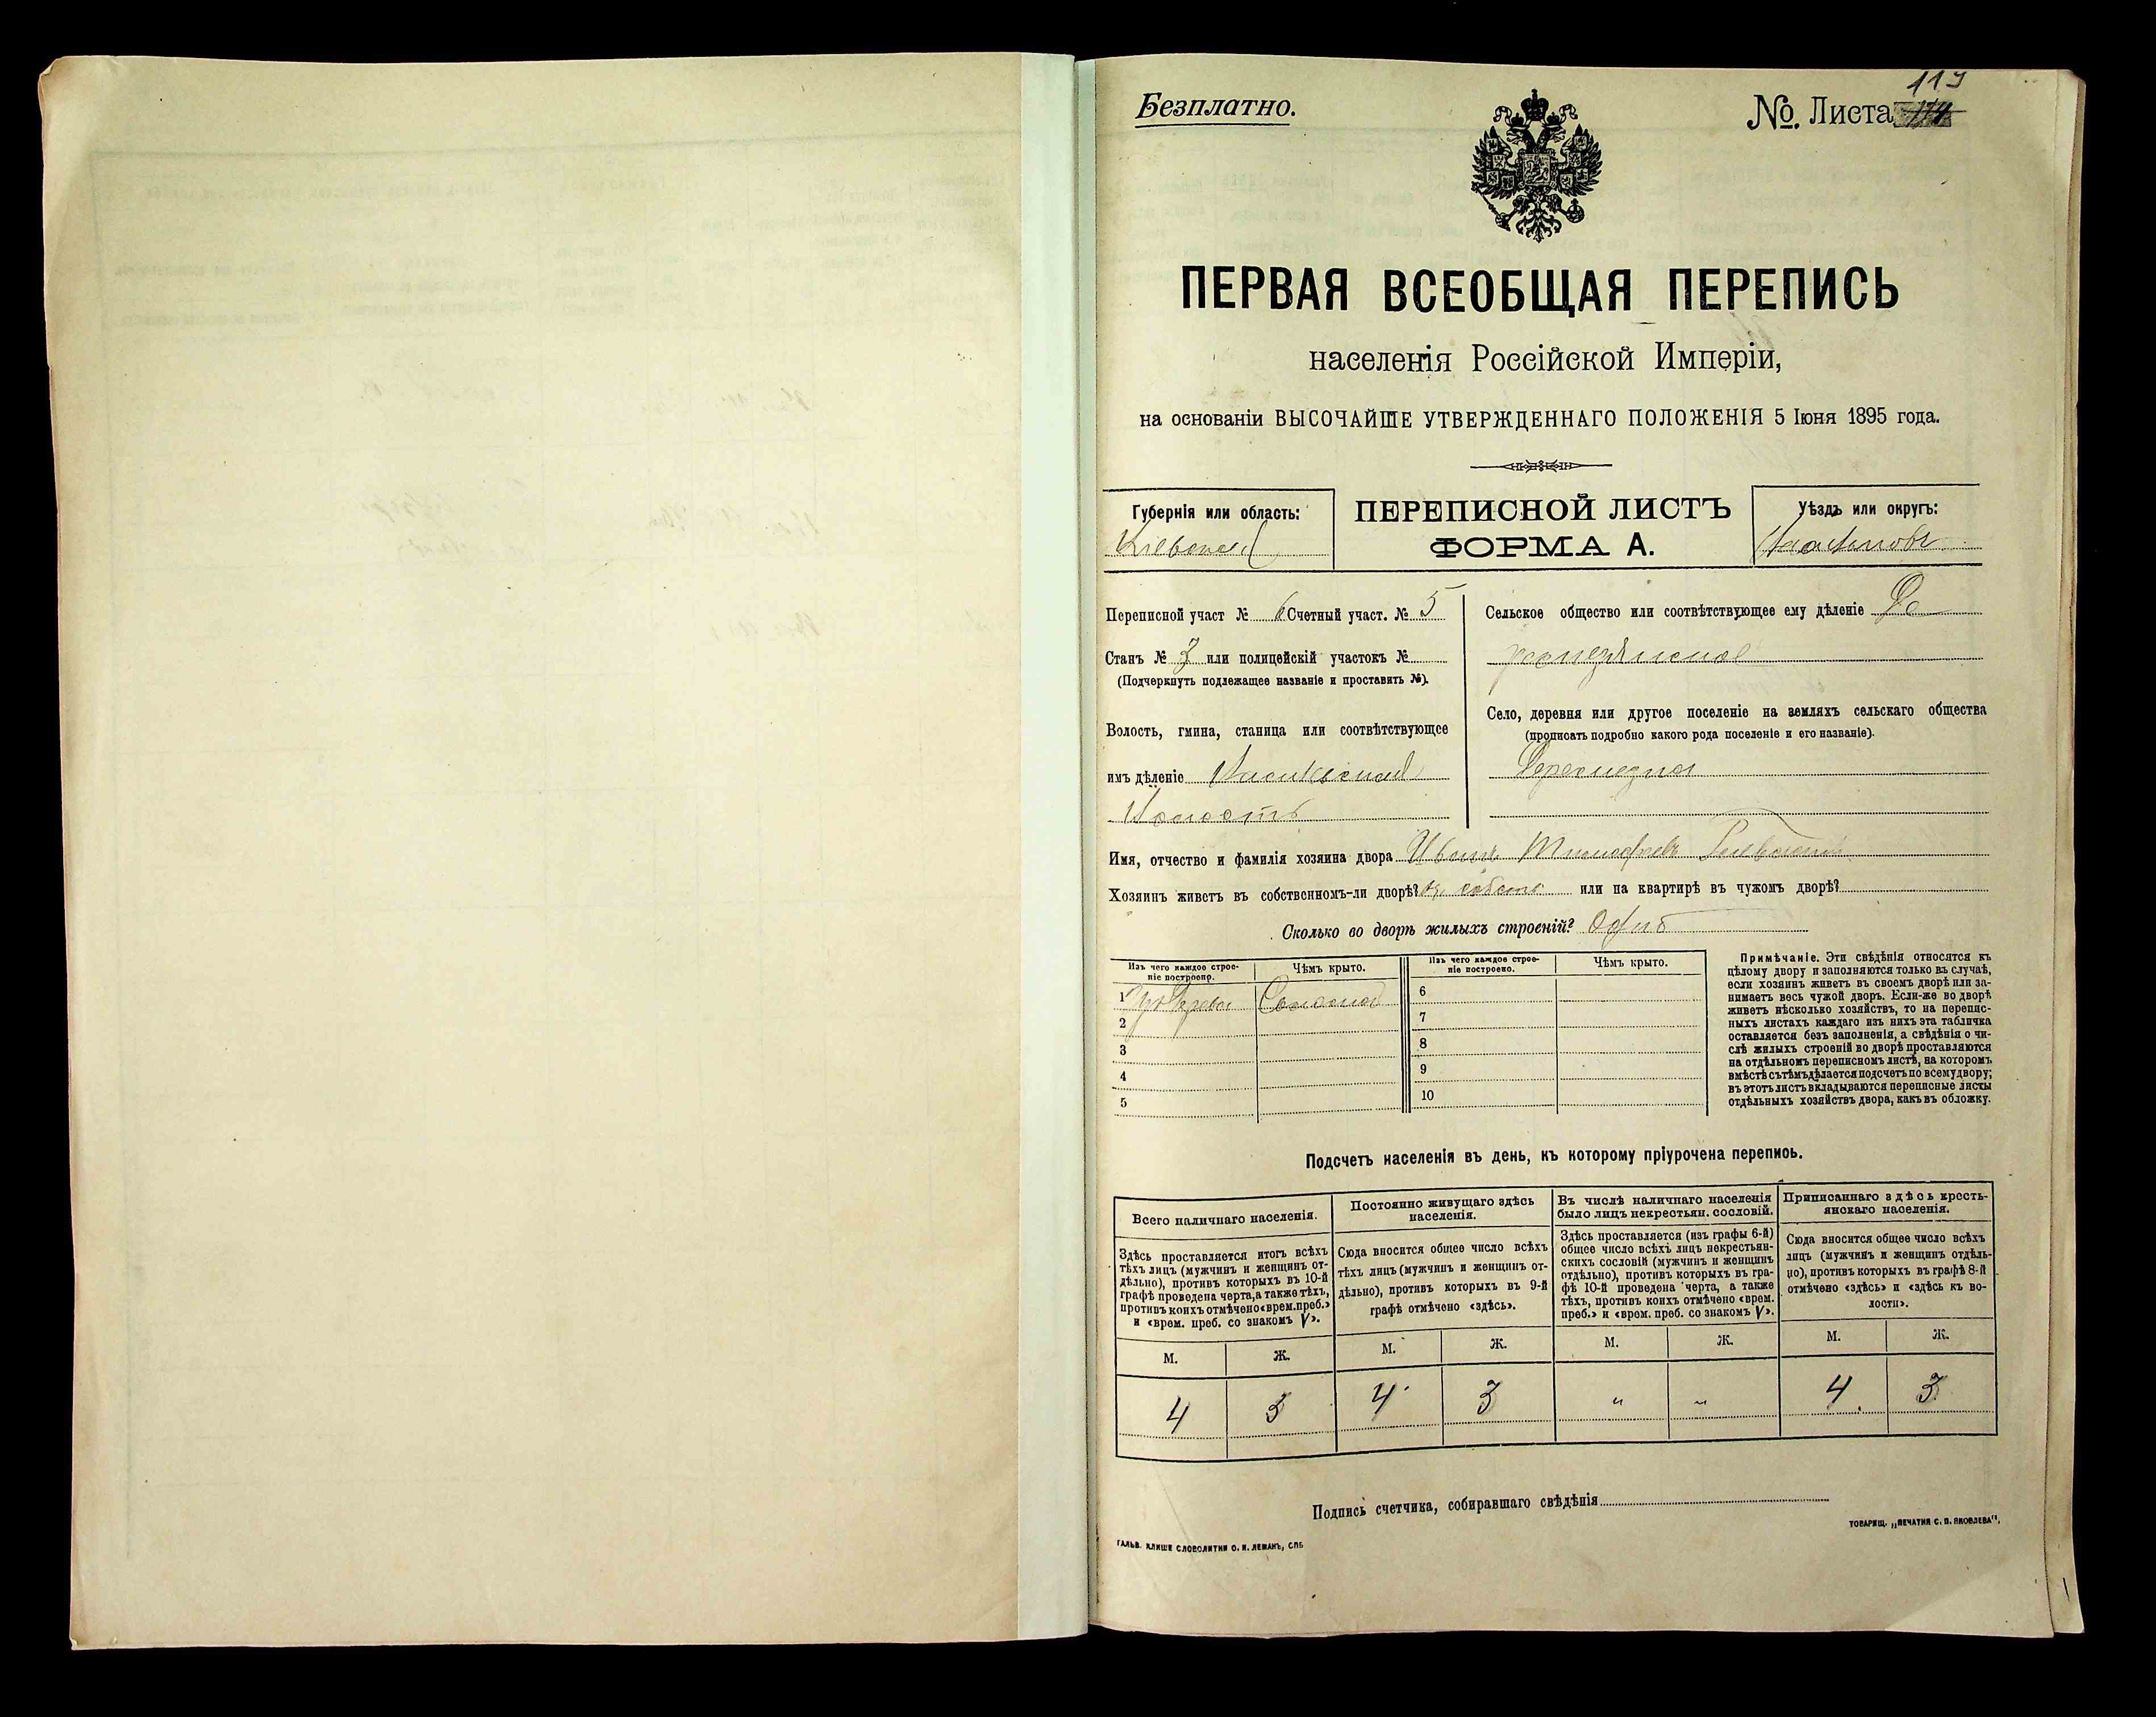 Безплатно.
№. Листа 119
ПЕРВАЯ ВСЕОБЩАЯ ПЕРЕПИСЬ
населенія Россійской Имперіи,
на основаніи ВЫСОЧАЙШЕ УТВЕРЖДЕННАГО ПОЛОЖЕНІЯ 5 Іюня 1895 года.
Губернія или область:
Кіевская
ПЕРЕПИСНОЙ ЛИСТЪ
ФОРМА А.
Уѣздъ или округъ:
Переписной участ № 6 Счетный участ. № 5
Станъ № 3 или полицейскій участокъ №
(Подчеркнуть подлежащее названіе и проставить №).
Волость, гмина, станица или соотвѣтствующее
имъ дѣленіе
Волость
Сельское общество или соотвѣтствующее ему дѣленіе
Село, деревня или другое поселеніе на земляхъ сельскаго общества
(прописать подробно какого рода поселеніе и его названіе).
Имя, отчество и фамилія хозяина двора Иванъ
Хозяинъ живетъ въ собственномъ-ли дворѣ? или на квартирѣ въ чужомъ дворѣ?
Сколько во дворѣ жилыхъ строеній? Одно
Изъ чего каждое строе-
ніе построено.
Чѣмъ крыто.
Изъ чего каждое строе-
ніе построено.
Чѣмъ крыто.
1 Соломой
2
3
4
5
6
7
8
9
10
Примѣчаніе. Эти свѣдѣнія относятся къ
цѣлому двору и заполняются только въ случаѣ,
если хозяинъ живетъ въ своемъ дворѣ или за-
нимаетъ весь чужой дворъ. Если-же во дворѣ
живетъ нѣсколько хозяйствъ, то на перепис-
ныхъ листахъ каждаго изъ нихъ эта табличка
оставляется безъ заполненія, а свѣдѣнія о чи-
слѣ жилыхъ строеній во дворѣ проставляются
на отдѣльномъ переписномъ листѣ, на которомъ
вмѣстѣ съ тѣмъ дѣлается подсчетъ по всему двору;
въ этотъ листъ вкладываются переписные листы
отдѣльныхъ хозяйствъ двора, какъ въ обложку.
Подсчетъ населенія въ день, къ которому пріурочена перепись.
Всего наличнаго населенія.
Здѣсь проставляется итогъ всѣхъ
тѣхъ лицъ (мужчинъ и женщинъ от-
дѣльно), противъ которыхъ въ 10-й
графѣ проведена черта, а также тѣхъ,
противъ коихъ отмѣчено «врем. преб.»
и «врем. преб. со знакомъ V».
Постоянно живущаго здѣсь
населенія.
Сюда вносится общее число всѣхъ
тѣхъ лицъ (мужчинъ и женщинъ от-
дѣльно), противъ которыхъ въ 9-й
графѣ отмѣчено «здѣсь».
Въ числѣ наличнаго населенія
было лицъ некрестьян. сословій.
Здѣсь проставляется (изъ графы 6-й)
общее число всѣхъ лицъ некрестьян-
скихъ сословій (мужчинъ и женщинъ
отдѣльно), противъ которыхъ въ гра-
фѣ 10-й проведена черта, а также
тѣхъ, противъ коихъ отмѣчено «врем.
преб.» и «врем. преб. со знакомъ V».
Приписаннаго здѣсь кресть-
янскаго населенія.
Сюда вносится общее число всѣхъ
лицъ (мужчинъ и женщинъ отдѣль-
но), противъ которыхъ въ графѣ 8-й
отмѣчено «здѣсь» и «здѣсь къ во-
лости».
М. Ж. М. Ж. М. Ж. М. Ж.
4 3 4 3 " " 4 3
Подпись счетчика, собиравшаго свѣдѣнія
ГАЛЬВ. КЛИШЕ СЛОВОЛИТНИ О. И. ЛЕМАНЪ, СПБ
ТОВАРИЩ. „ПЕЧАТНЯ С. П. ЯКОВЛЕВА".